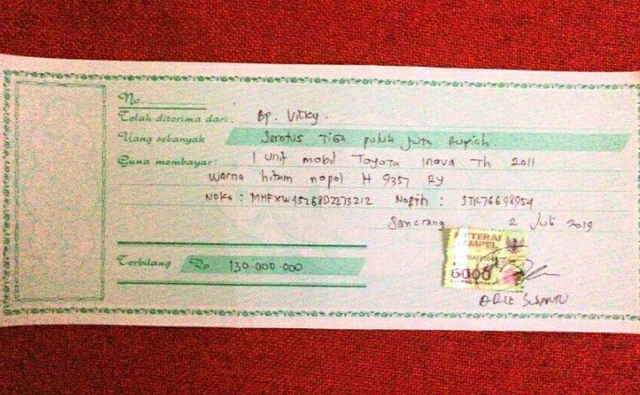 No.
Telah diterima dari : Bp. Vitky.
Uang sebanyak Seratus Tiga puluh juta Rupiah.
Guna membayar : 1 unit mobil Toyota Inova Th 2011
Warna hitam nopol H 9357 Ry
Noka : MHFXW45268D2273212 Nopin : 1TR76698954
Semarang 2 Juli 2019
METERAI
TEMPEL
6000
Terbilang Rp 130.000.000